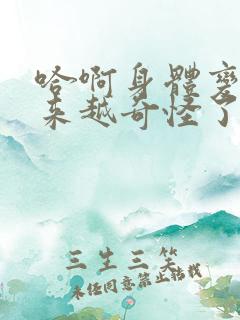 哈啊身體變
来越奇怪了
三生三笑
未经同意禁止转载